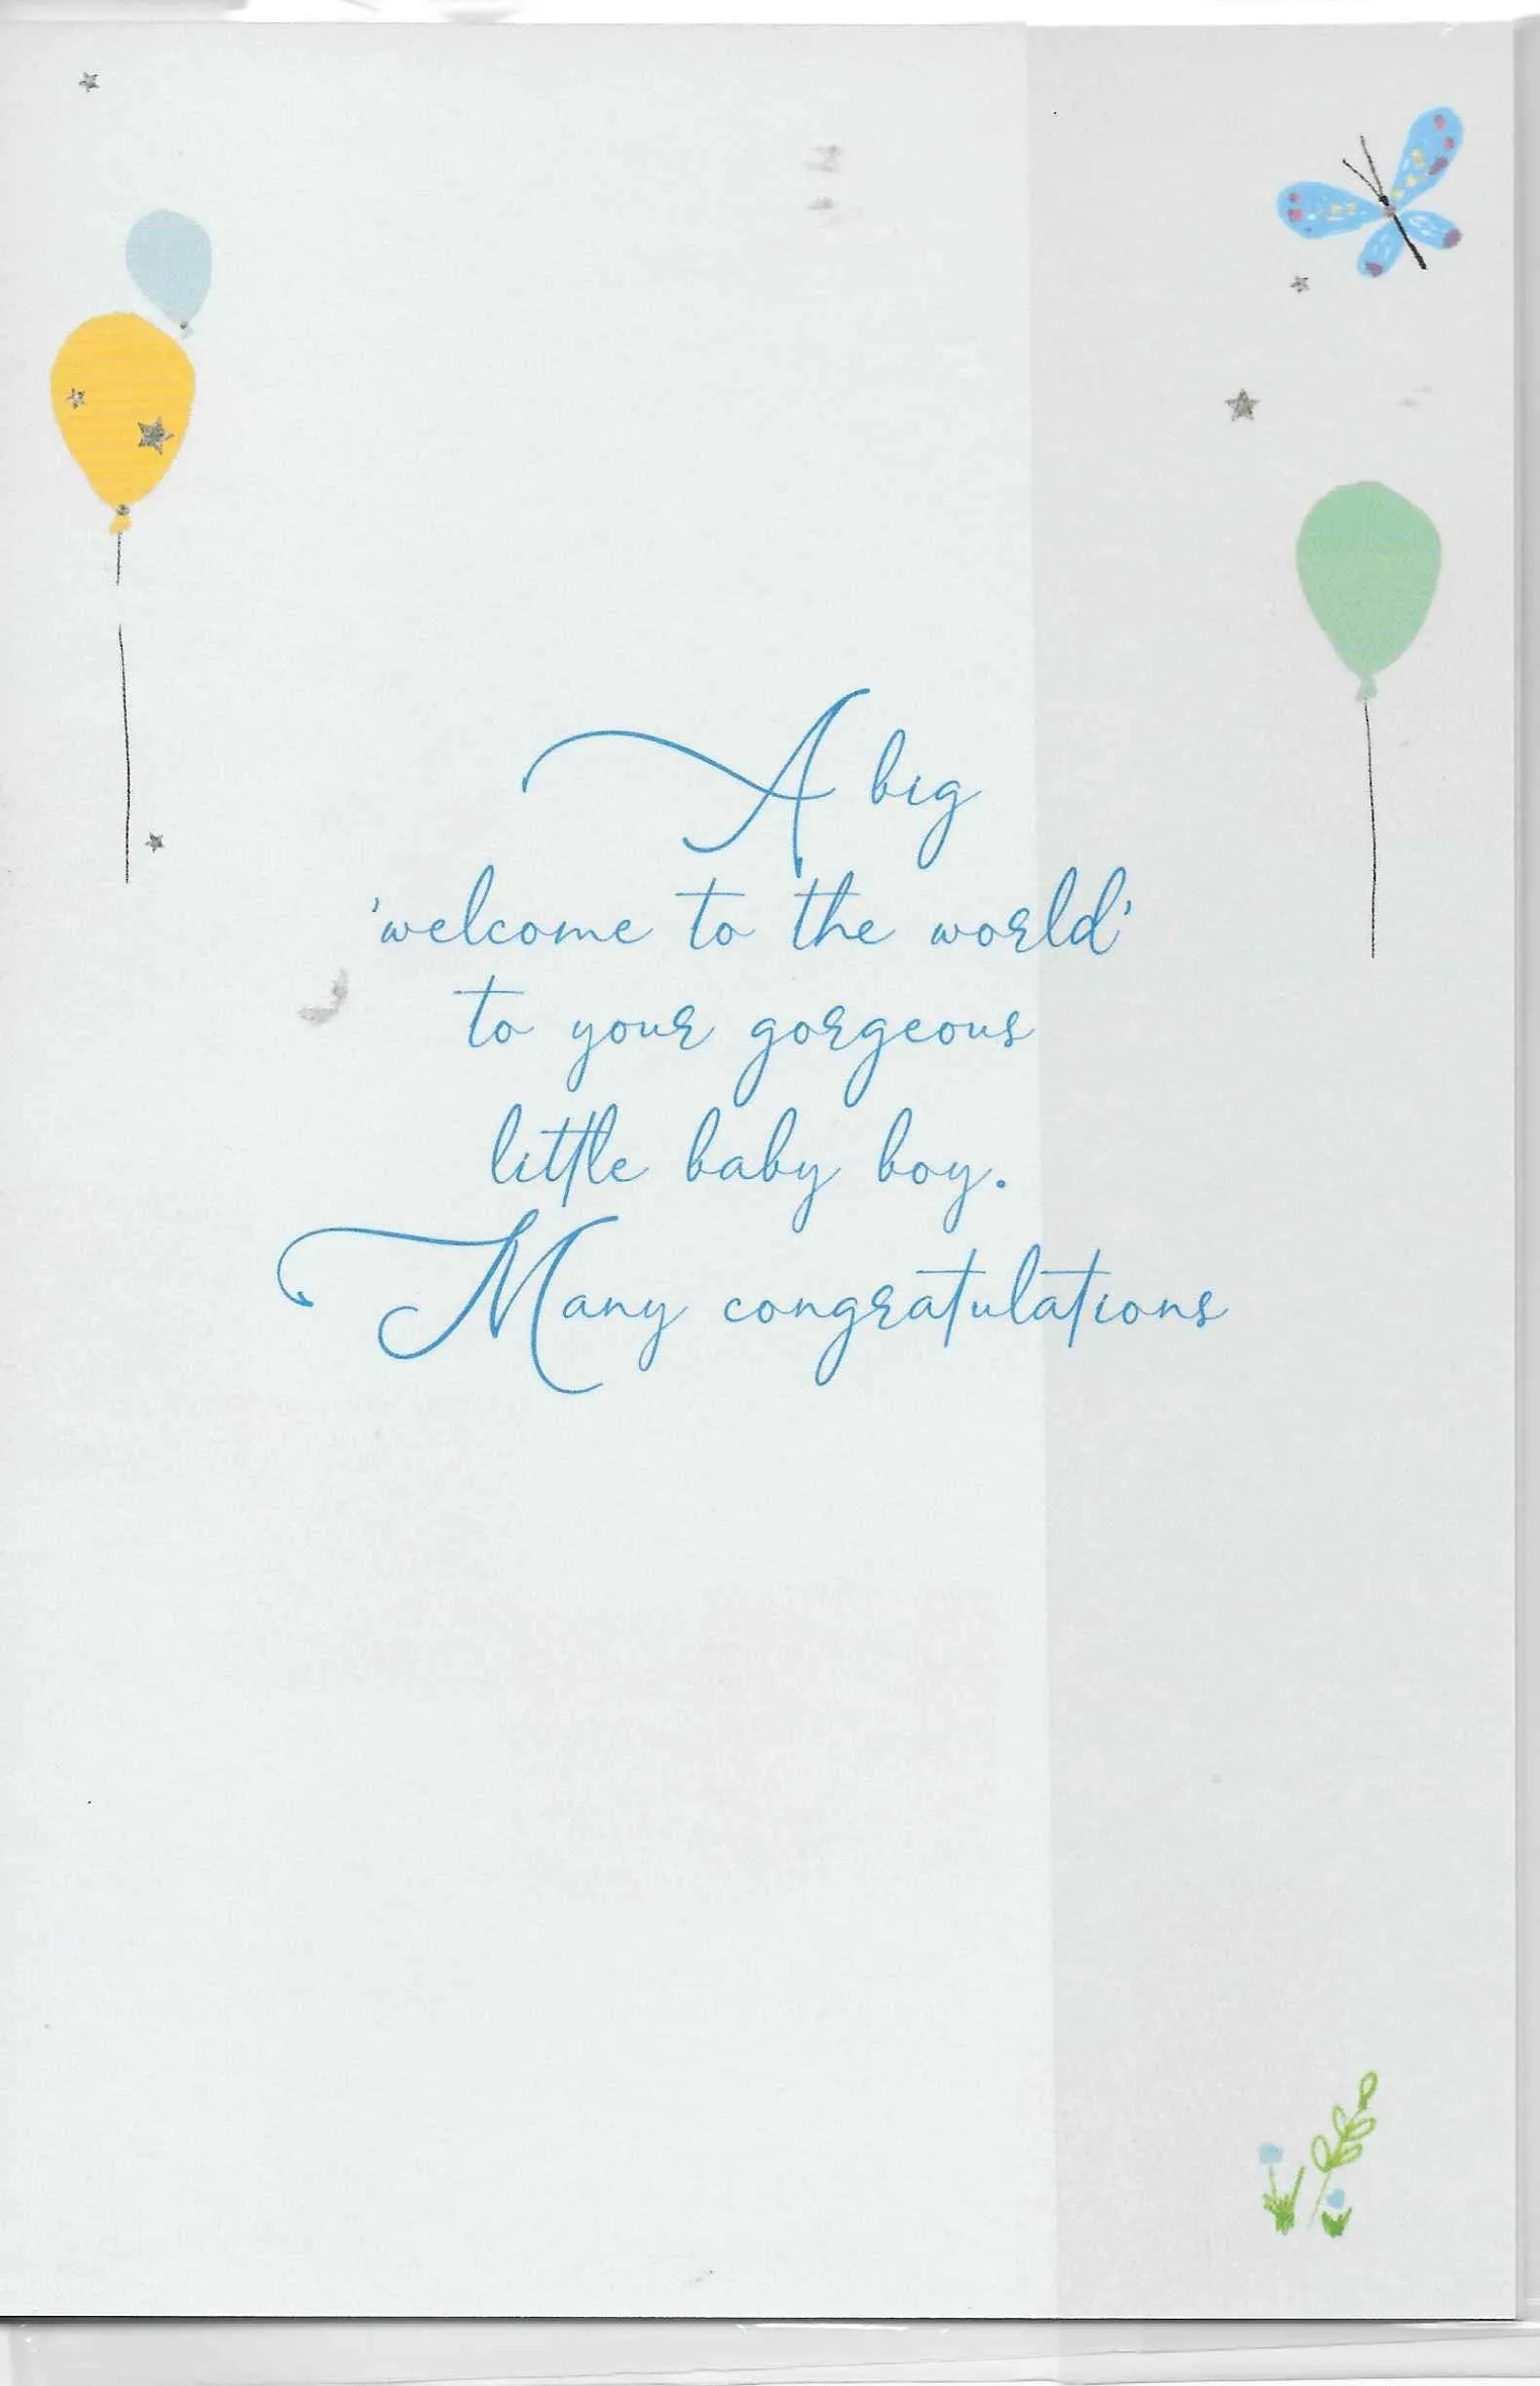 A big
'welcome to the world'
to your gorgeous
little baby boy.
Many congratulations